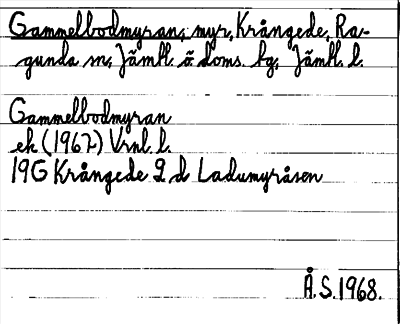 Gammelbodmyran, myr, Krångede, Ra-
gunda sn, Jämtl. ö doms. bg, Jämtl. l.
Gammelbodmyran
ek (1967) Vrnl. l.
19G Krångede 2 d Ladumyråsen
Å.S.1968.